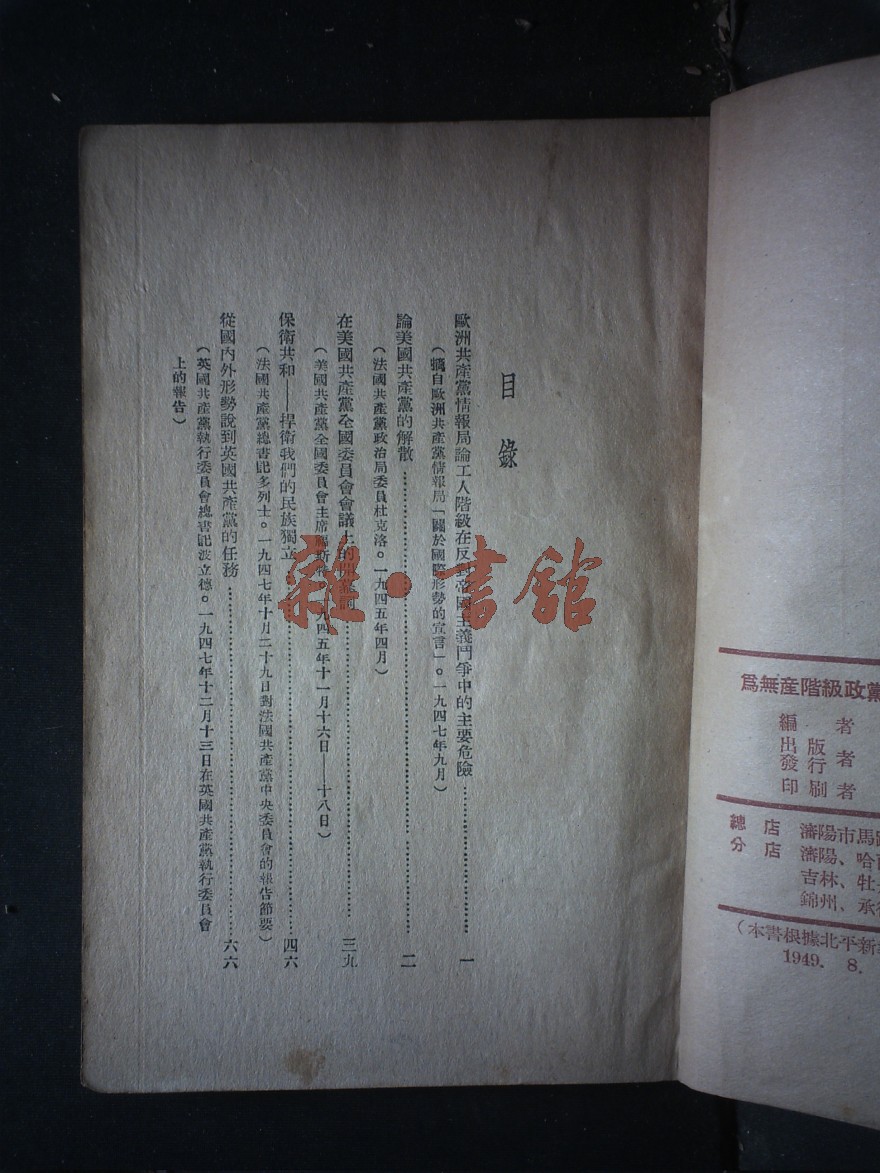 目錄
歐洲共產黨情報局論工人階級在反對帝國主義鬥爭中的主要危險……一
（摘自歐洲共產黨情報局「關於國際形勢的宣言」。一九四七年九月）
論美國共產黨的解散……二
（法國共產黨政治局委員杜克洛。一九四五年四月）
在美國共產黨全國委員會會議上的開幕詞……三九
（美國共產黨全國委員會主席福斯特。一九四五年十一月十六日——十八日）
保衛共和——捍衛我們的民族獨立……四六
（法國共產黨總書記多列士。一九四七年十月二十九日對法國共產黨中央委員會的報告節要）
從國內外形勢說到英國共產黨的任務……六六
（英國共產黨執行委員會總書記波立德。一九四七年十二月十三日在英國共產黨執行委員會
上的報告）
雜·書館
爲無產階級政黨
編者
出版
發行者
印刷者
總店 瀋陽市馬路
分店 瀋陽、哈
吉林、牡
錦州、承
（本書根據北平新
1949. 8.